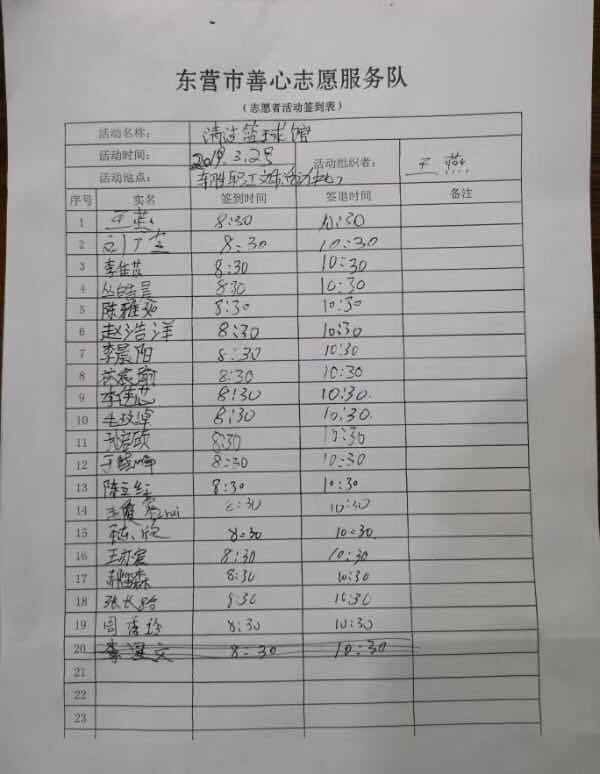 东营市善心志愿服务队
（志愿者活动签到表）
活动名称： 清洁篮球馆
活动时间： 2019.3.2号 活动组织者： 王燕
活动地点： 东胜职工文体活动中心
序号 实名 签到时间 签退时间 备注
1 王燕 8:30 10:30
2 8:30 10:30
3 李佳芸 8:30 10:30
4 丛皓昊 8:30 10:30
5 陈雅茹 8:30 10:30
6 赵浩洋 8:30 10:30
7 李晨阳 8:30 10:30
8 8:30 10:30
9 李佳芯 8:30 10:30
10 8:30 10:30
11 8:30 10:30
12 于晓晖 8:30 10:30
13 陈立红 8:30 10:30
14 8:30 10:30
15 8:30 10:30
16 王亦宸 8:30 10:30
17 8:30 10:30
18 8:30 10:30
19 周秀珍 8:30 10:30
20 8:30 10:30
21
22
23